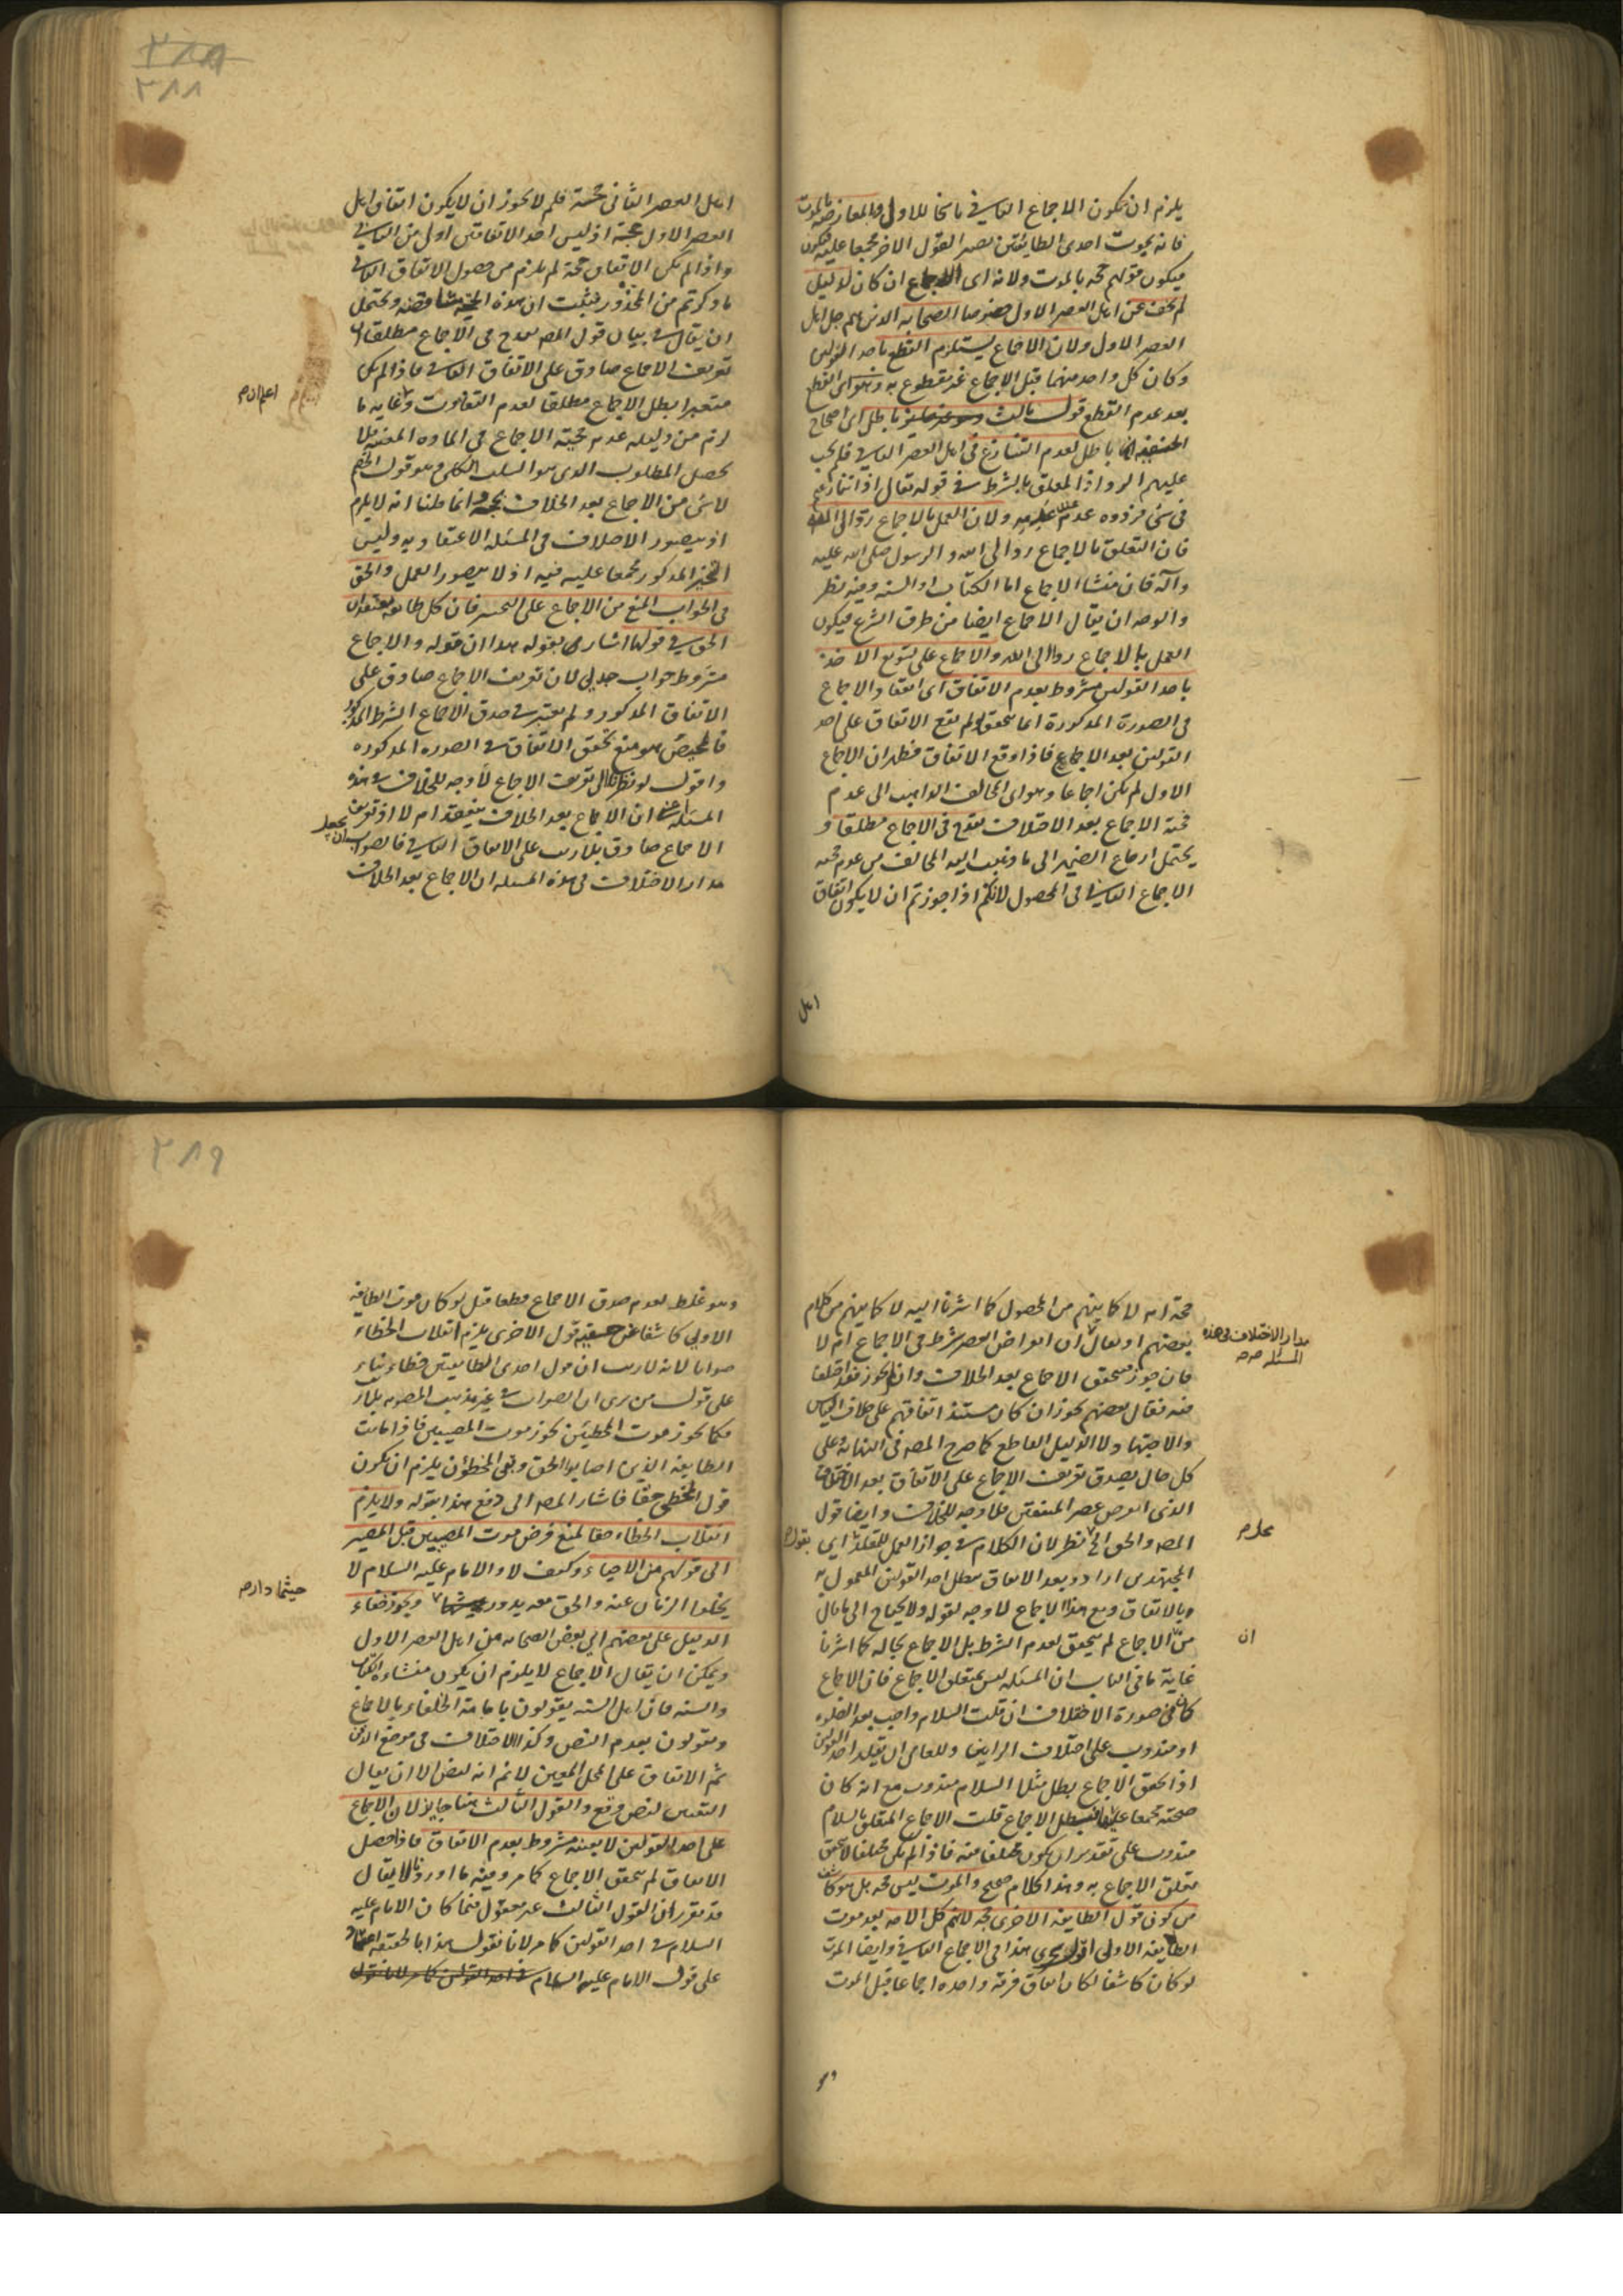 يلزم ان يكون الاجماع الثاني ناسخا للاول والمعارضة بالموت
فانه بموت احدى الطائفتين يصير القول الاخر مجمعا عليه فيكون
فيكون قولهم حجة بالموت ولانه اى الاجماع ان كان لدليل
لم يخف عن اهل العصر الاول خصوصا الصحابة الذين هم جل اهل
العصر الاول ولان الاجماع يستلزم القطع باحد القولين
وكان كل واحد منهما قبل الاجماع غير مقطوع به وهو اى القطع
بعد عدم القطع قول ثالث باطل اى احتجاج
الحنفية باطل لعدم التنازع فى اهل العصر الثاني فلم يجب
عليهم الرد اذ المعلق بالشرط في قوله تعالى اذا تنازعتم
فى شئ فردوه عدم عند عدمه ولان العمل بالاجماع رد الى الله
فان التعلق بالاجماع رد الى الله والرسول صلى الله عليه
وآله فان منشا الاجماع اما الكتاب او السنة وفيه نظر
والوجه ان يقال الاجماع ايضا من طرق الشرع فيكون
العمل بالاجماع ردا الى الله والاجماع على تسويغ الاخذ
باحد القولين مشروط بعدم الاتفاق اى انعقاد الاجماع
فى الصورة المذكورة انما يتحقق لو لم يقع الاتفاق على احد
القولين بعد الاجماع فاذا وقع الاتفاق فظهر ان الاجماع
الاول لم يكن اجماعا وهو اى المخالف الذاهب الى عدم
حجية الاجماع بعد الاختلاف يقدح فى الاجماع مطلقا و
يحتمل ارجاع الضمير الى ما ذهب اليه المخالف من عدم حجية
الاجماع الثاني فى المحصول لانكم اذا جوزتم ان لا يكون اتفاق
اهل
٣٨٨
اهل العصر الثانى حجة فلم لا يجوز ان لا يكون اتفاق اهل
العصر الاول حجة اذ ليس احد الاتفاقين اولى من الثاني
واذا لم يكن الاتفاق حجة لم يلزم من حصول الاتفاق الثاني
ما ذكرتم من المحذور فثبت ان هذه الحجة متناقضة ويحتمل
ان يقال في بيان قول المص يقدح فى الاجماع مطلقا ان
تعريف الاجماع صادق على الاتفاق الثاني فاذا لم يكن
معتبرا بطل الاجماع مطلقا لعدم التفاوت وغاية ما
اعلم ان م
لزم من دليله عدم حجية الاجماع فى المادة المعينة فلا
يحصل المطلوب الذى هو السلب الكلى وهو قول الخصم
لا شئ من الاجماع بعد الخلاف بحجة وانما ظننا انه لا يلزم
اذ يتصور الاختلاف فى المسئلة الاعتقادية وليس
التخيير المذكور مجمعا عليه فيه اذ لا يتصور العمل والحق
فى الجواب المنع من الاجماع على التخيير فان كل طائفة تعتقد ان
الحق في قولها اشار بقوله هذا ان قوله والاجماع
مشروط جواب جدلي لان تعريف الاجماع صادق على
الاتفاق المذكور ولم يعتبر في صدق الاجماع الشرط المذكور
فالمحيص هو منع تحقق الاتفاق في الصورة المذكورة
واقول لو نظر الى تعريف الاجماع لا وجه للخلاف في هذه
المسئلة اعنى ان الاجماع بعد الخلاف ينعقد ام لا اذ تعريف
الاجماع صادق بلا ريب على الاتفاق الثاني فالصواب ان يجعل
مدار الاختلاف فى هذه المسئلة ان الاجماع بعد الخلاف
حجة ام لا كما بينهم من المحصول كما اشرنا اليه لا كما بينهم من كلام
بعضهم او يقال ان انقراض العصر شرط فى الاجماع ام لا
مدار الاختلاف فى هذه
المسئلة صح
فان جوز تحقق الاجماع بعد الخلاف وان لم يجوز فقد اختلفا
فيه فقال بعضهم يجوز ان كان مستند اتفاقهم على خلاف القياس
والاجتهاد لا الدليل القاطع كما صرح المص فى النهاية وعلى
كل حال يصدق تعريف الاجماع على الاتفاق بعد الاختلاف
الذى انقرض عصر المتفقين فلا وجه للخلاف وايضا قول
المص والحق الخ نظر لان الكلام في جواز العمل للمقلد اى بقول
المجتهدين ارادو بعد الاتفاق يبطل احد القولين المعمول به
وبالاتفاق ومع هذا الاجماع لا وجه لقوله ولا يحتاج الى ما قال
من الاجماع لم يتحقق لعدم الشرط بل الاجماع بحاله كما اشرنا
ان
غاية ما فى الباب ان المسئلة ليس بمتعلق الاجماع فان الاجماع
كان فى صورة الاختلاف ان قلت السلام واجب بعد الصلوة
او مندوب على اختلاف الرايين وللعامى ان يقلد احد القولين
اذا تحقق الاجماع بطل مثلا السلام مندوب مع انه كان
صحته مجمعا عليها فيبطل الاجماع قلت الاجماع المتعلق بالسلام
مندوب على تقدير ان يكون مختلفا فيه فاذا لم يكن مختلفا لا يتحقق
تعلق الاجماع به وهذا كلام صحيح والموت ليس حجة بل هو كاشف
من كون قول الطائفة الاخرى حجة لانهم كل الامة بعد موت
الطائفة الاولى اقول يجرى هذا فى الاجماع الثاني وايضا الموت
لو كان كاشفا لكان اتفاق فرقة واحدة اجماعا قبل الموت
وهو
٣٨٩
وهو غلط لعدم صدق الاجماع قطعا قيل لو كان موت الطائفة
الاولى كاشفا عن حقية قول الاخرى يلزم انقلاب الخطاء
صوابا لانه لا ريب ان قول احدى الطائفتين خطاء بناء
على قول من يرى ان الصواب في غير مذهب المصوبة
فكما يجوز موت المخطئين يجوز موت المصيبين فاذا ماتت
الطايفة الذين اصابوا الحق وبقى المخطؤن يلزم ان يكون
قول المخطى حقا فاشار المص الى دفع هذا بقوله ولا يلزم
انقلاب الخطاء حقا لمنع فرض موت المصيبين قبل المصير
الى قولهم من الاحياء وكيف لا والامام عليه السلام لا
يخلوا الزمان عنه والحق معه يدور ويجوز خفاء
حيثما دار م
الدليل على بعضهم اى بعض الصحابة من اهل العصر الاول
ويمكن ان يقال الاجماع لا يلزم ان يكون منشاءه الكتاب
والسنة فان اهل السنة يقولون بامامة الخلفاء بالاجماع
ويقولون بعدم النص وكذا الاختلاف فى موضع الدفن
ثم الاتفاق على المحل المعين لا نم انه لنص الا ان يقال
التعيين لنص وقع والقول الثالث هنا جايز لان الاجماع
على احد القولين لا بعينه مشروط بعدم الاتفاق فاذا حصل
الاتفاق لم يتحقق الاجماع كما مر وفيه ما اوردنا لا يقال
قد تقرر ان القول الثالث غير معقول فيما كان الامام عليه
السلام في احد القولين كما مر لانا نقول هذا بالحقيقة اعتماد
على قول الامام عليه السلام في احد القولين كما مر لانا نقول